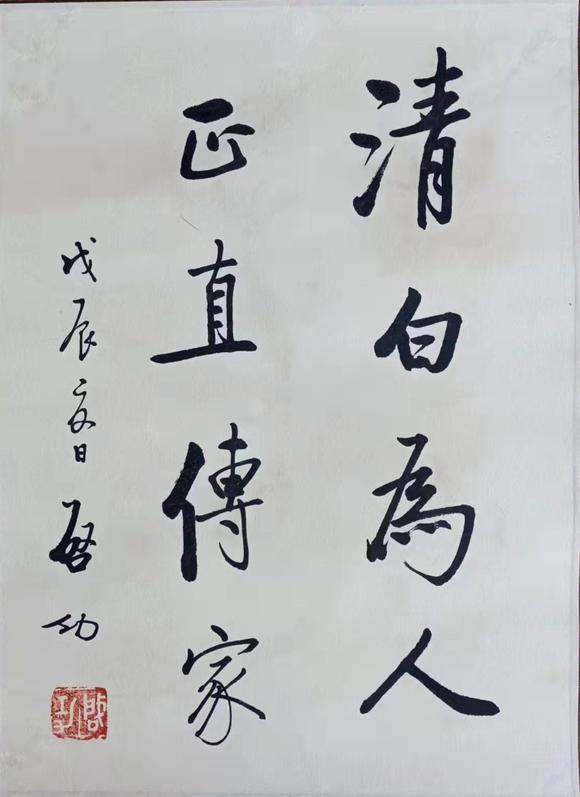 清白為人
正直傳家
戊辰夏日 啓功
啓功